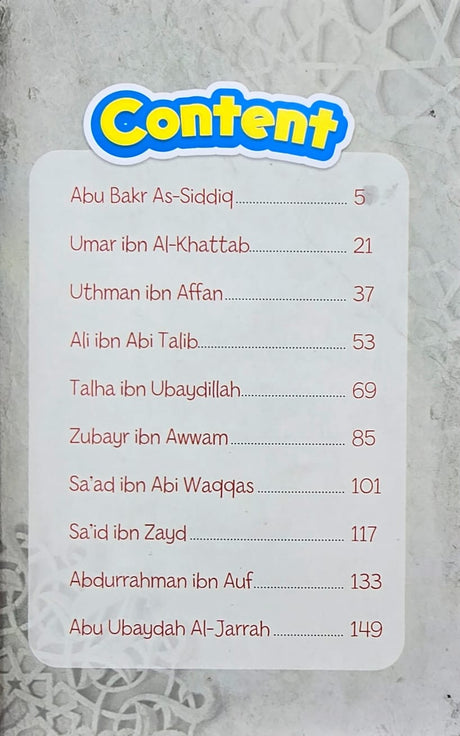 Content
Abu Bakr As-Siddiq........................ 5
Umar ibn Al-Khattab..................... 21
Uthman ibn Affan.......................... 37
Ali ibn Abi Talib................................ 53
Talha ibn Ubaydillah...................... 69
Zubayr ibn Awwam........................ 85
Sa'ad ibn Abi Waqqas.................. 101
Sa'id ibn Zayd................................ 117
Abdurrahman ibn Auf................... 133
Abu Ubaydah Al-Jarrah............... 149